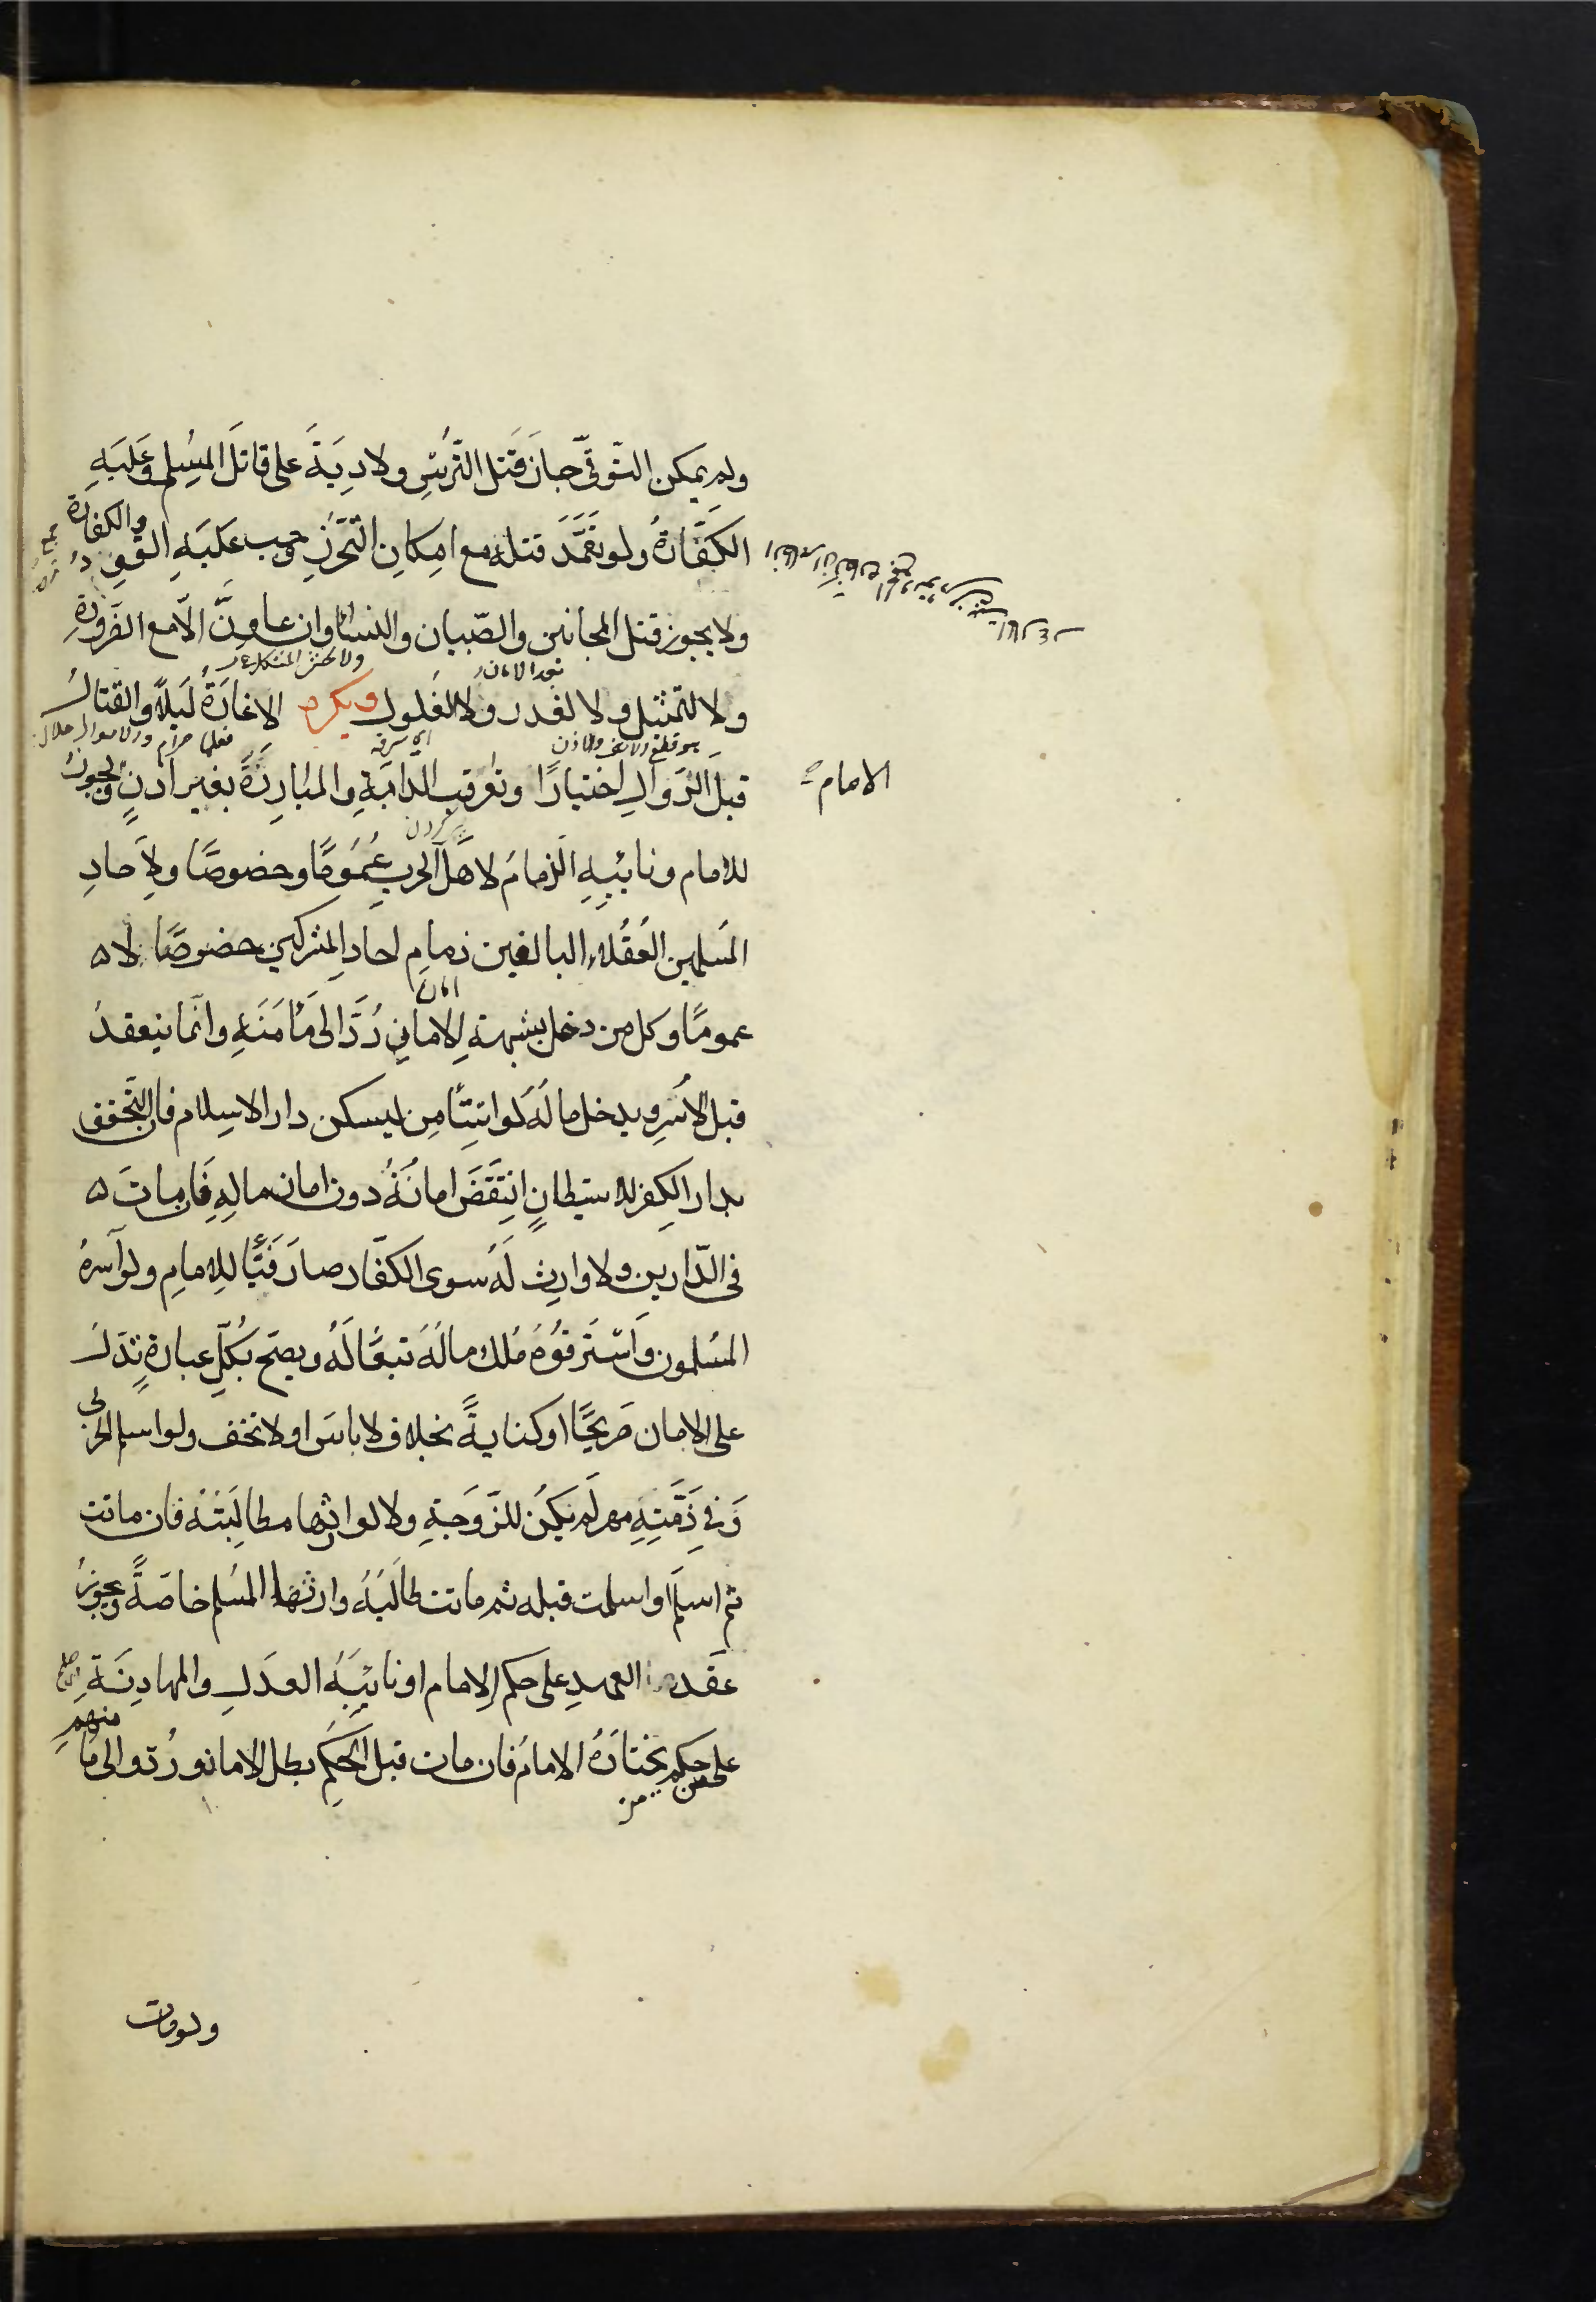 ولم يمكن التّوقّي جاز قتل التّرس ولا دية على قاتل المسلم وعليه
الكفّارة ولو تعمّد قتله مع امكان التّحرّز وجب عليه القود والكفارة
ولا يجوز قتل المجانين والصّبيان والنساء وان عاونّ الّا مع الضّرورة
بعد الامان
ولا التمثيل ولا الغدر ولا الغلول ويكره الاغارة ليلاً والقتال
اي سرقه
هو قطع الانف والاذن
قبل الزّوال اختيارًا وتعرقب الدّابّة والمبارزة بغير اذن ويجوز
الامام
للامام ونائبه الذمام لاهل الحرب عمومًا وخصوصًا ولآحاد
المسلمين العقلاء البالغين ذمام احاد المشركين خصوصًا لا
امان
عمومًا وكل من دخل بشبهة الامان ردّ الى مأمنه وانّما ينعقد
قبل الأسر ويدخل ماله لو استأمن ليسكن دار الاسلام فان التحق
بدار الكفر للاستيطان انتقض امانه دون امان ماله فان مات
في الدّارين ولا وارث له سوى الكفّار صار فيئًا للامام ولو آسره
المسلمون واسترقوه ملك ماله تبعًا له ويصح بكلّ عبارة تدل
على الامان صريحًا او كناية بخلاف لا باس او لا تخف ولو اسلم الحربي
وفي ذمّته مهر لم يكن للزّوجة ولا لوارثها مطالبته فان ماتت
ثم اسلم او اسلمت قبله ثم ماتت طالبه وارثها المسلم خاصة ويجوز
عقد العهد على حكم الامام او نائبه العدل والمهادنة
على حكم من يختاره الامام فان مات قبل الحكم بطل الامان وردّوا الى مأ
منهم
ولو مات